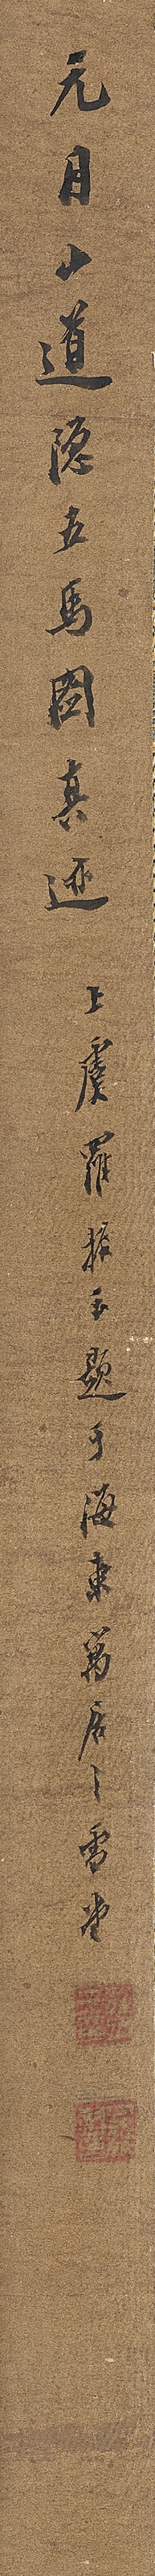 元月山道隐五馬圖真迹
上虞羅振玉題于海東寓居之雪堂